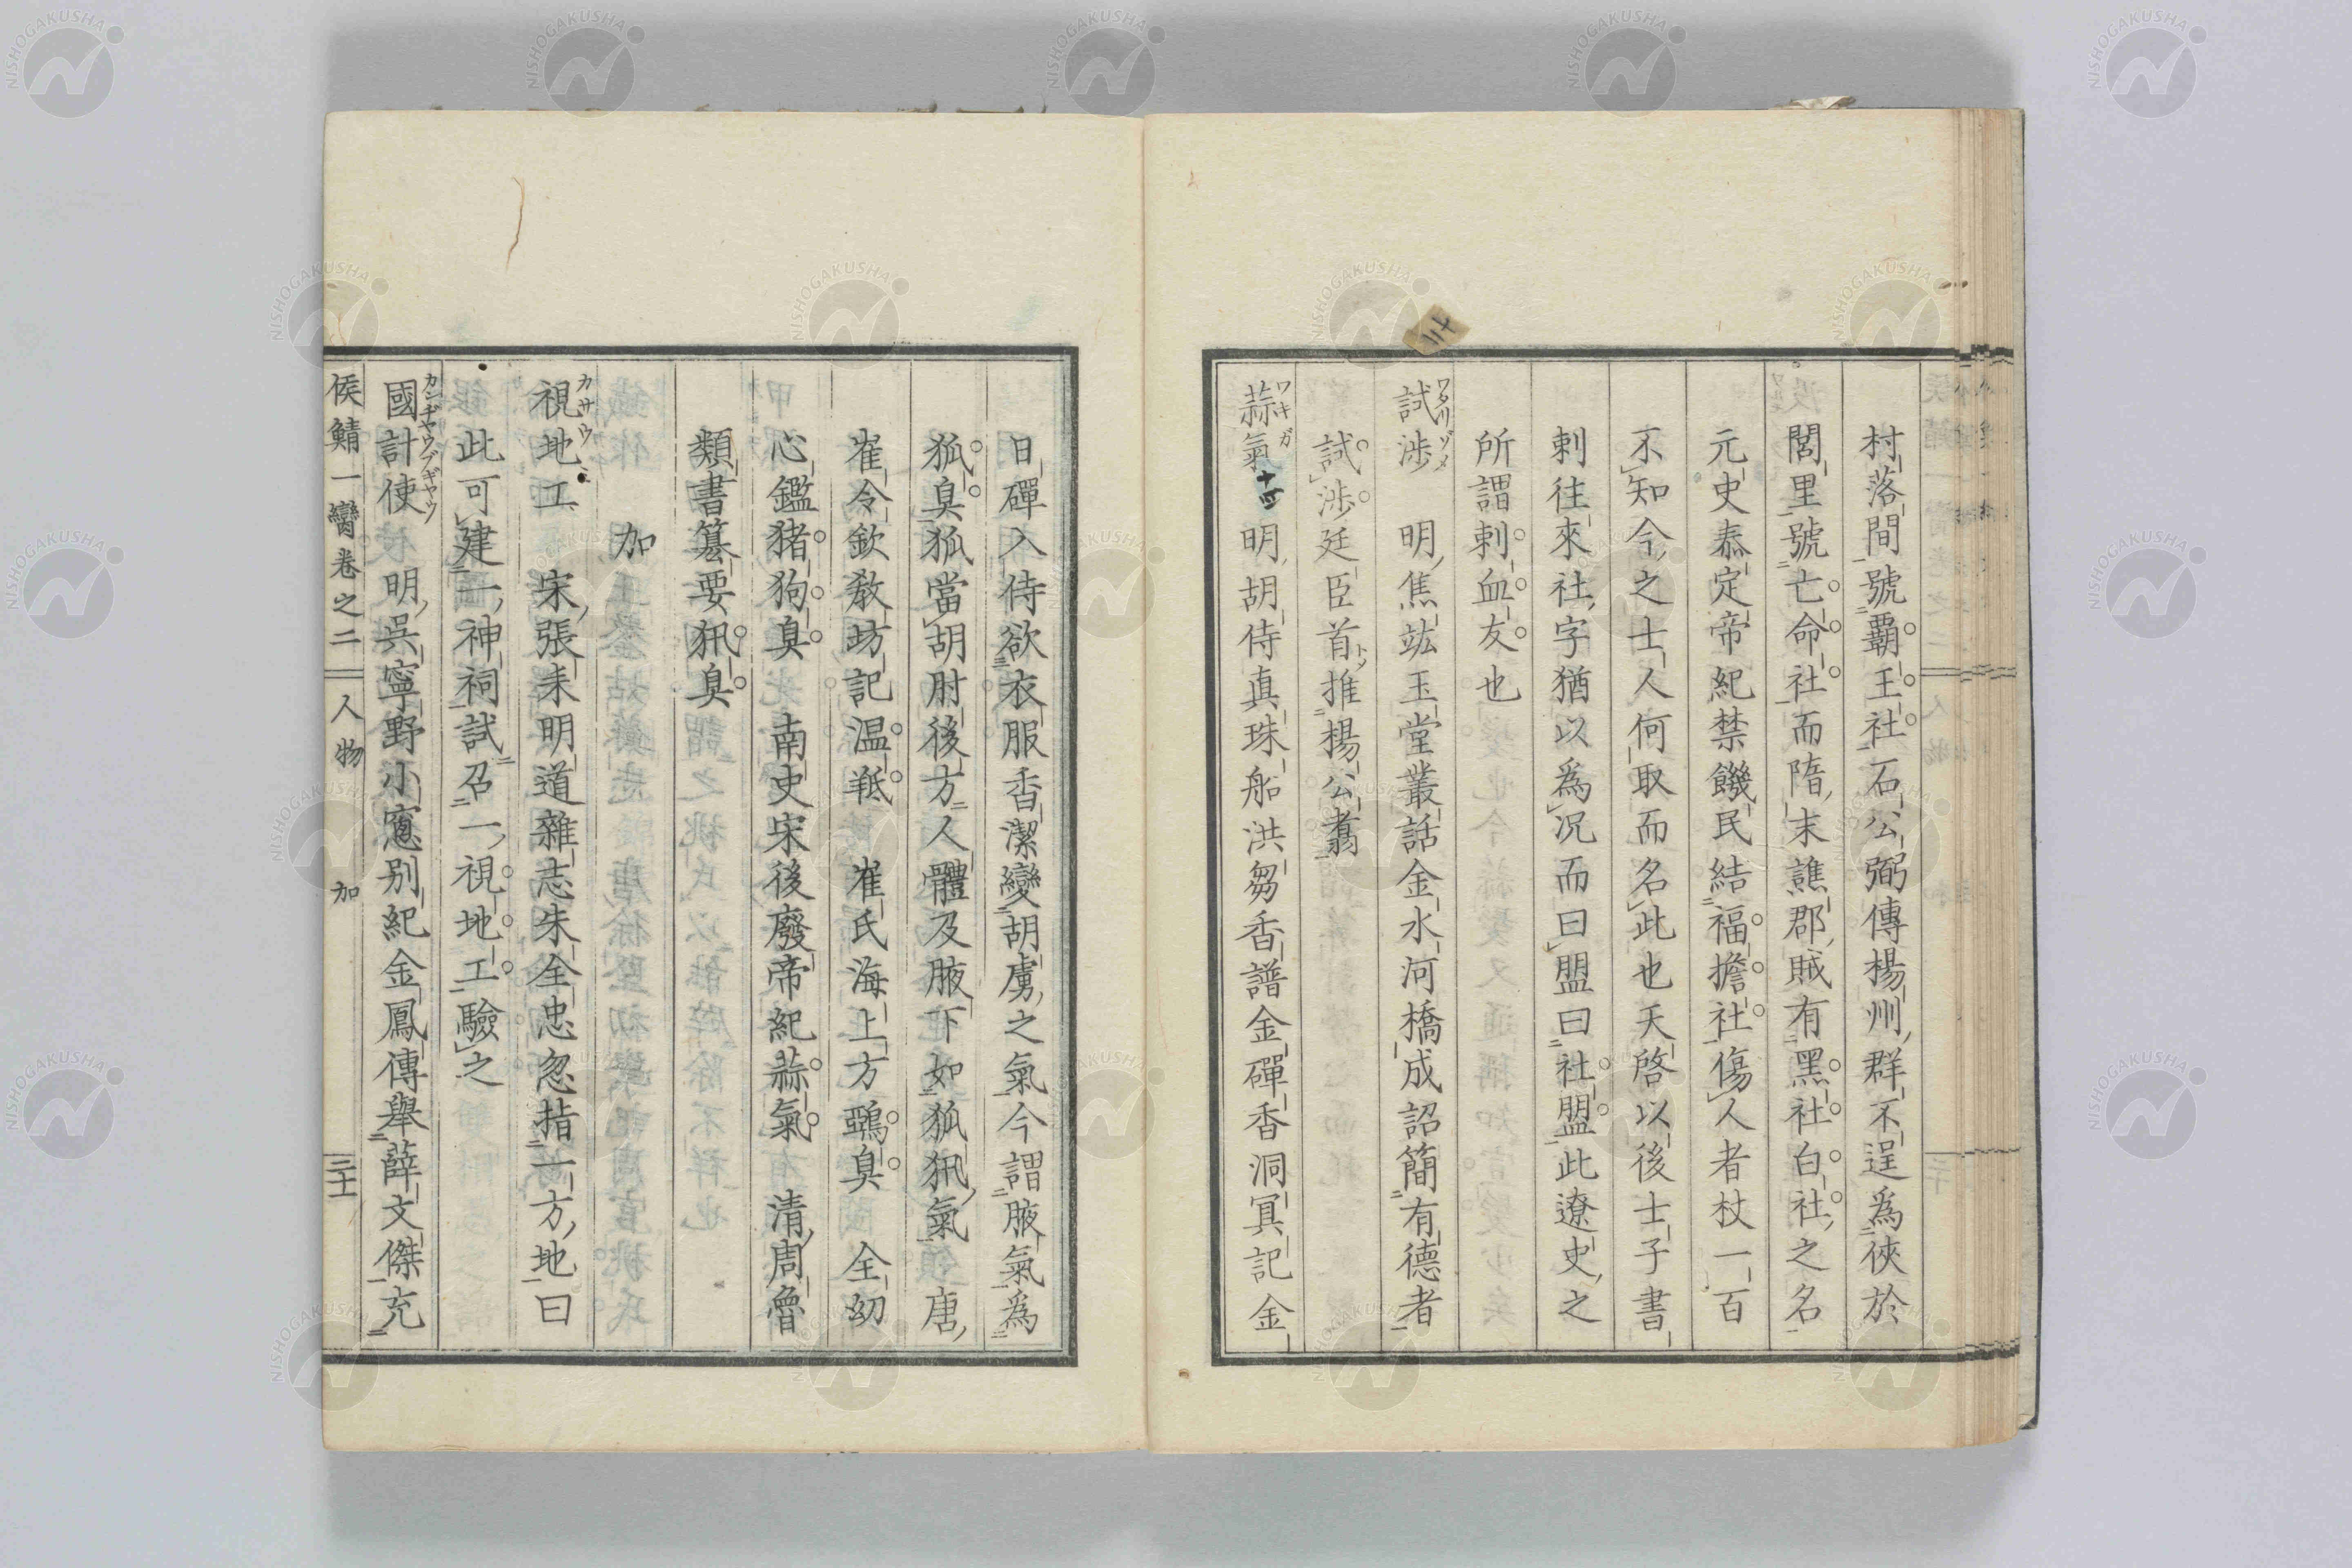 村落間號覇王社石公弼傳楊州群不逞爲俠於
閭里號亡命社而隋末譙郡賊有黑社白社之名
元史泰定帝紀禁饑民結福擔社傷人者杖一百
不知今之士人何取而名此也天啓以後士子書
刺往來社字猶以爲况而曰盟曰社盟此遼史之
所謂刺血友也
試渉 明焦竑玉堂叢話金水河橋成詔簡有德者
ワタリゾメ
試渉廷臣首推楊公翥
トメ
蒜氣 十四 明胡侍真珠船洪芻香譜金磾香洞冥記金
ワキガ
日磾入侍欲衣服香潔變胡虜之氣今謂腋氣爲
狐臭狐當胡肘後方人體及腋下如狐犼氣唐
崔令欽教坊記温羝 崔氏海上方鵶臭 全幼
心鑑猪狗臭 南史宋後廢帝紀蒜氣 清周魯
類書纂要犼臭
加
視地工 宋張耒明道雜志朱全忠忽指一方地曰
カサウ
此可建一神祠試召一視地工驗之
國計使 明吳寧野小窻別紀金鳳傳舉薛文傑充
カンヂヤウブギヤウ
侯鯖一臠卷之二 人物 加 二十一
十二
NISHOGAKUSHA